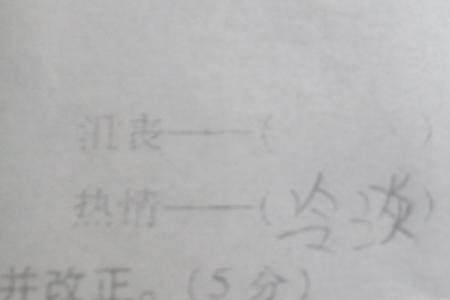 沮丧——(    )
热情——(冷淡)
并改正。(5分)